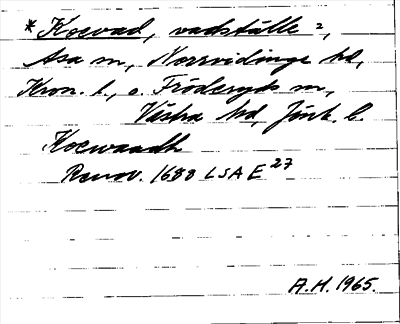 * Koevad, vadställe 2,
Asa sn, Norrvidinge hd,
Kron. l., o. Fröderyds sn,
Västra hd, Jönk. l.
Koewaadh
Renov. 1688 LSA E 27
A.H. 1965.